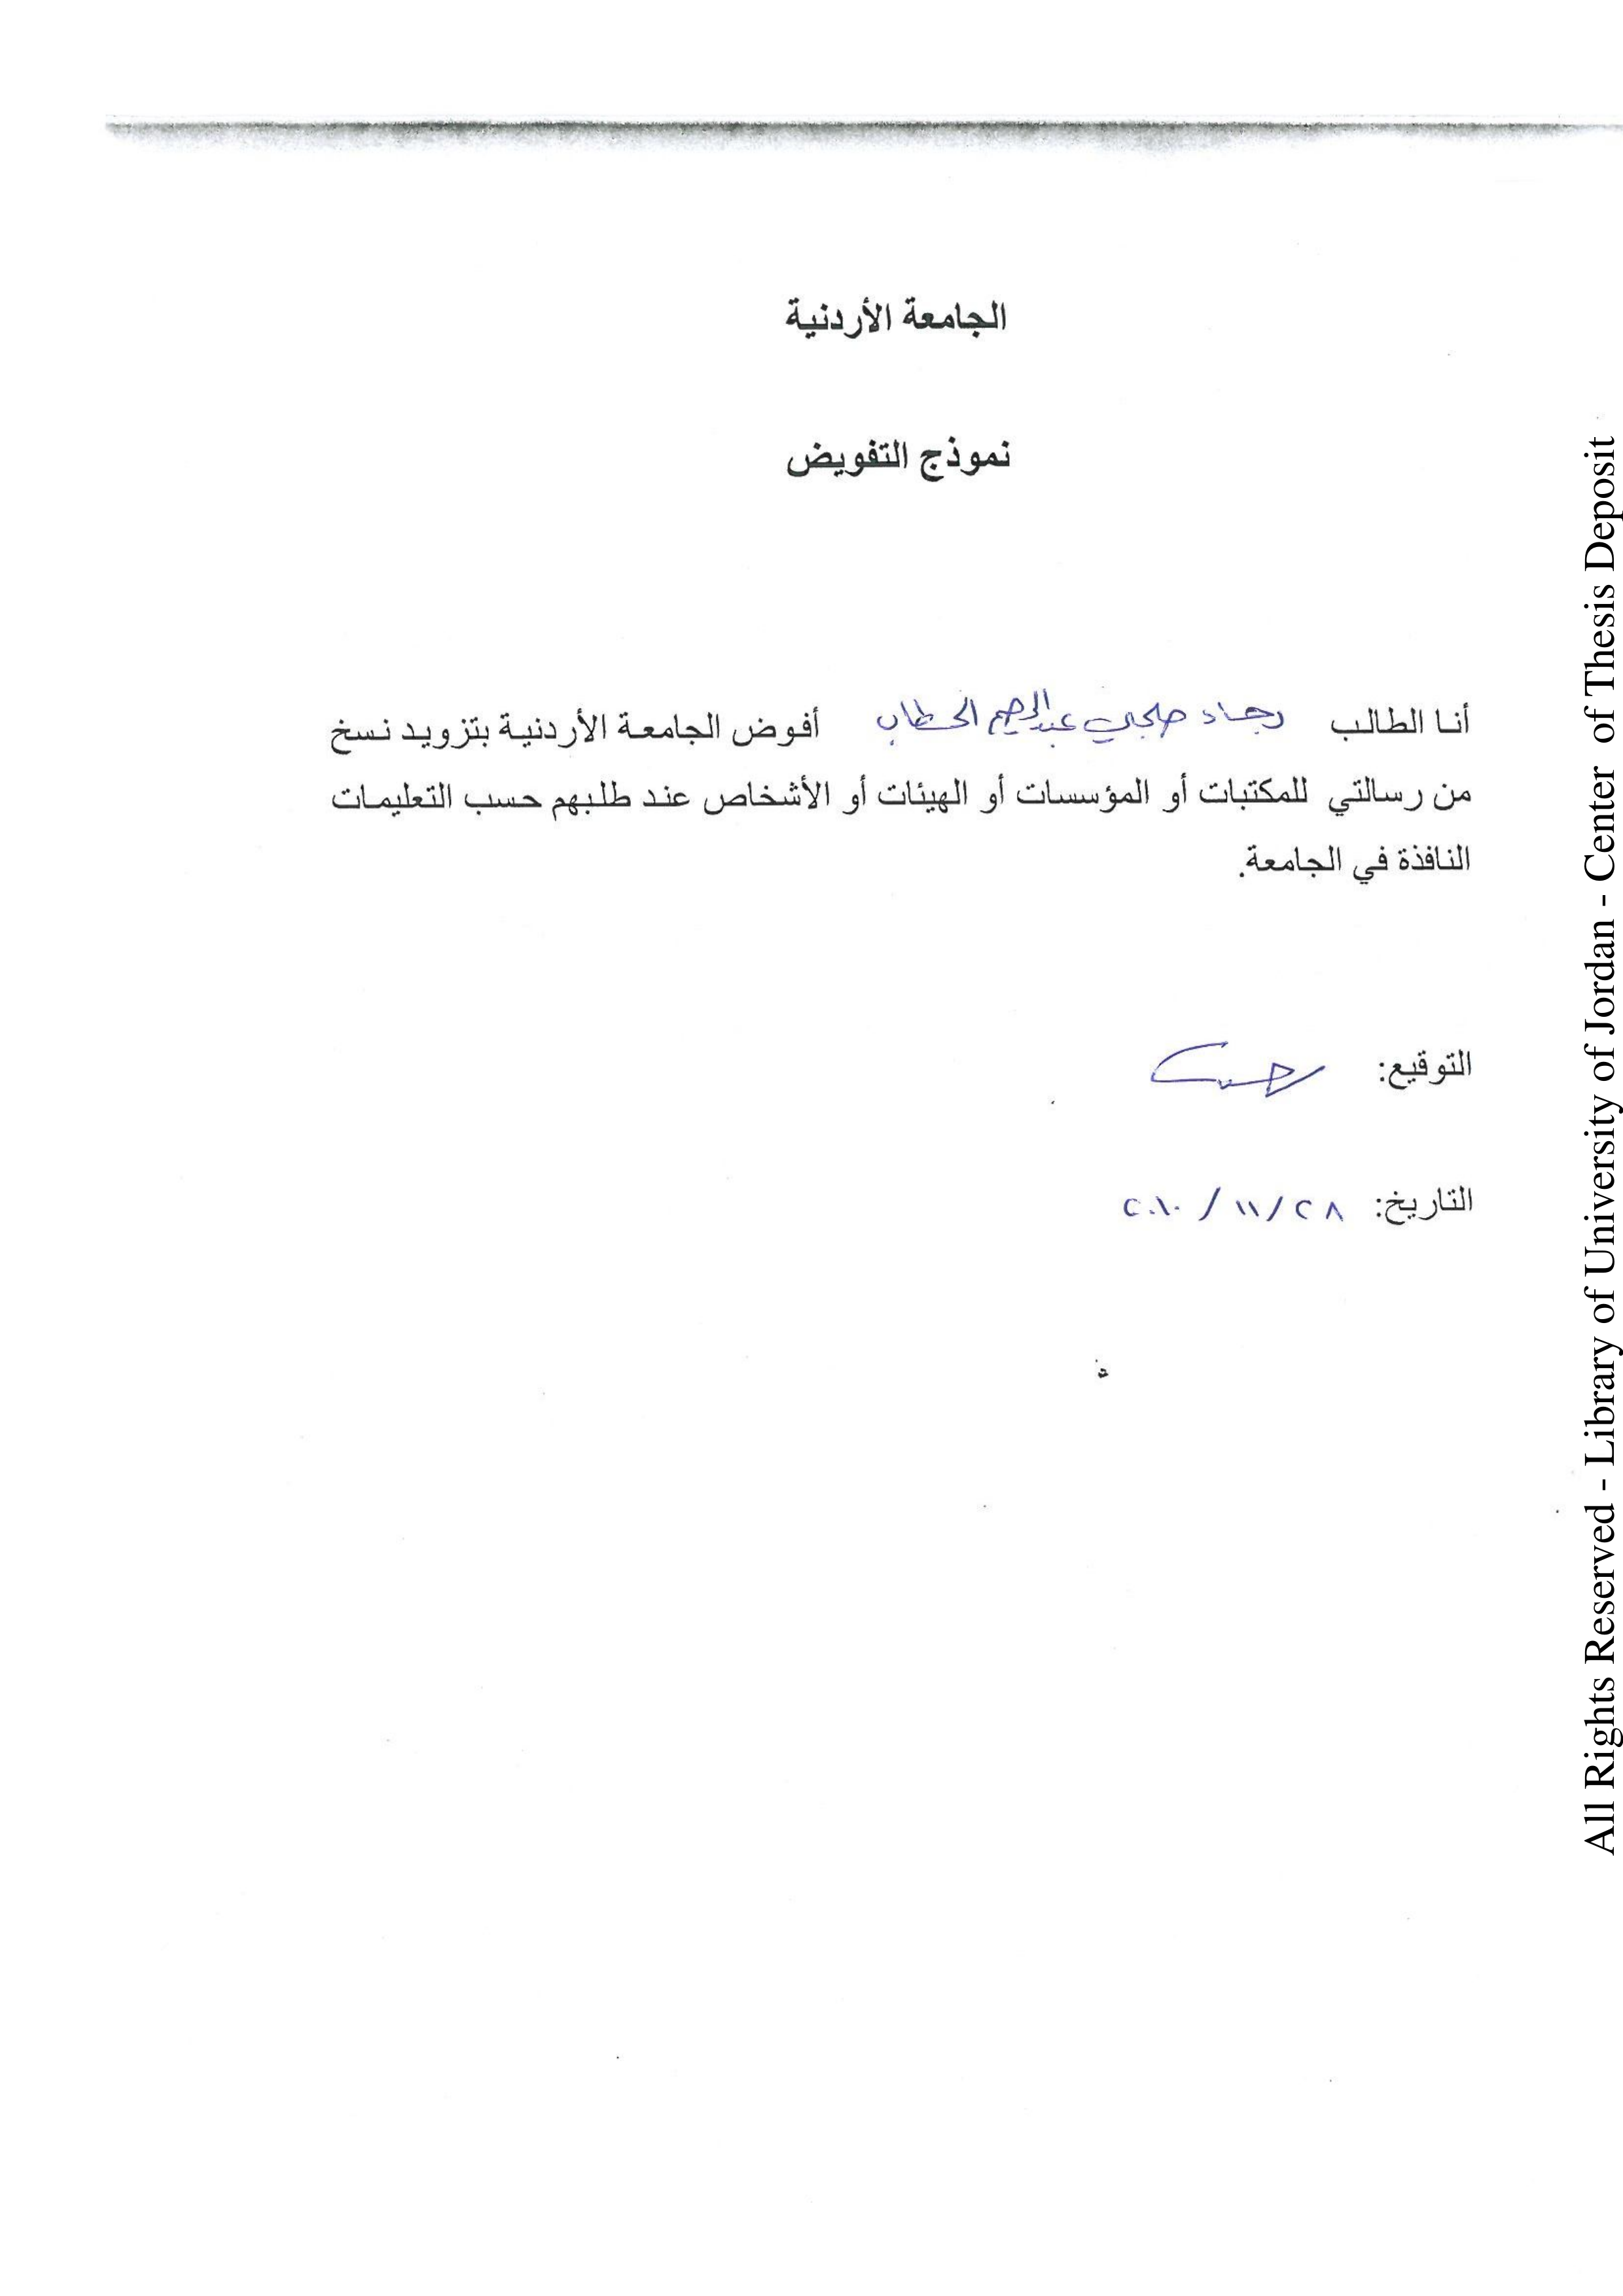 الجامعة الأردنية
نموذج التفويض
أنا الطالب عبدالرحيم الحطاب أفوض الجامعة الأردنية بتزويد نسخ
من رسالتي للمكتبات أو المؤسسات أو الهيئات أو الأشخاص عند طلبهم حسب التعليمات
النافذة في الجامعة.
التوقيع:
التاريخ: ٢٨ / ١١ / ٢٠١٠
All Rights Reserved - Library of University of Jordan - Center of Thesis Deposit